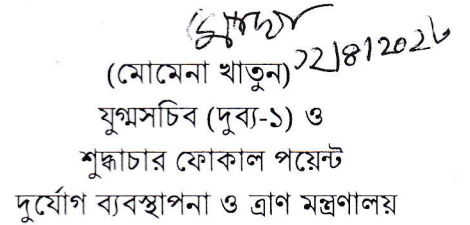 (মোমেনা খাতুন)
যুগ্মসচিব (দুব্য-১) ও
শুদ্ধাচার ফোকাল পয়েন্ট
দুর্যোগ ব্যবস্থাপনা ও ত্রাণ মন্ত্রণালয়